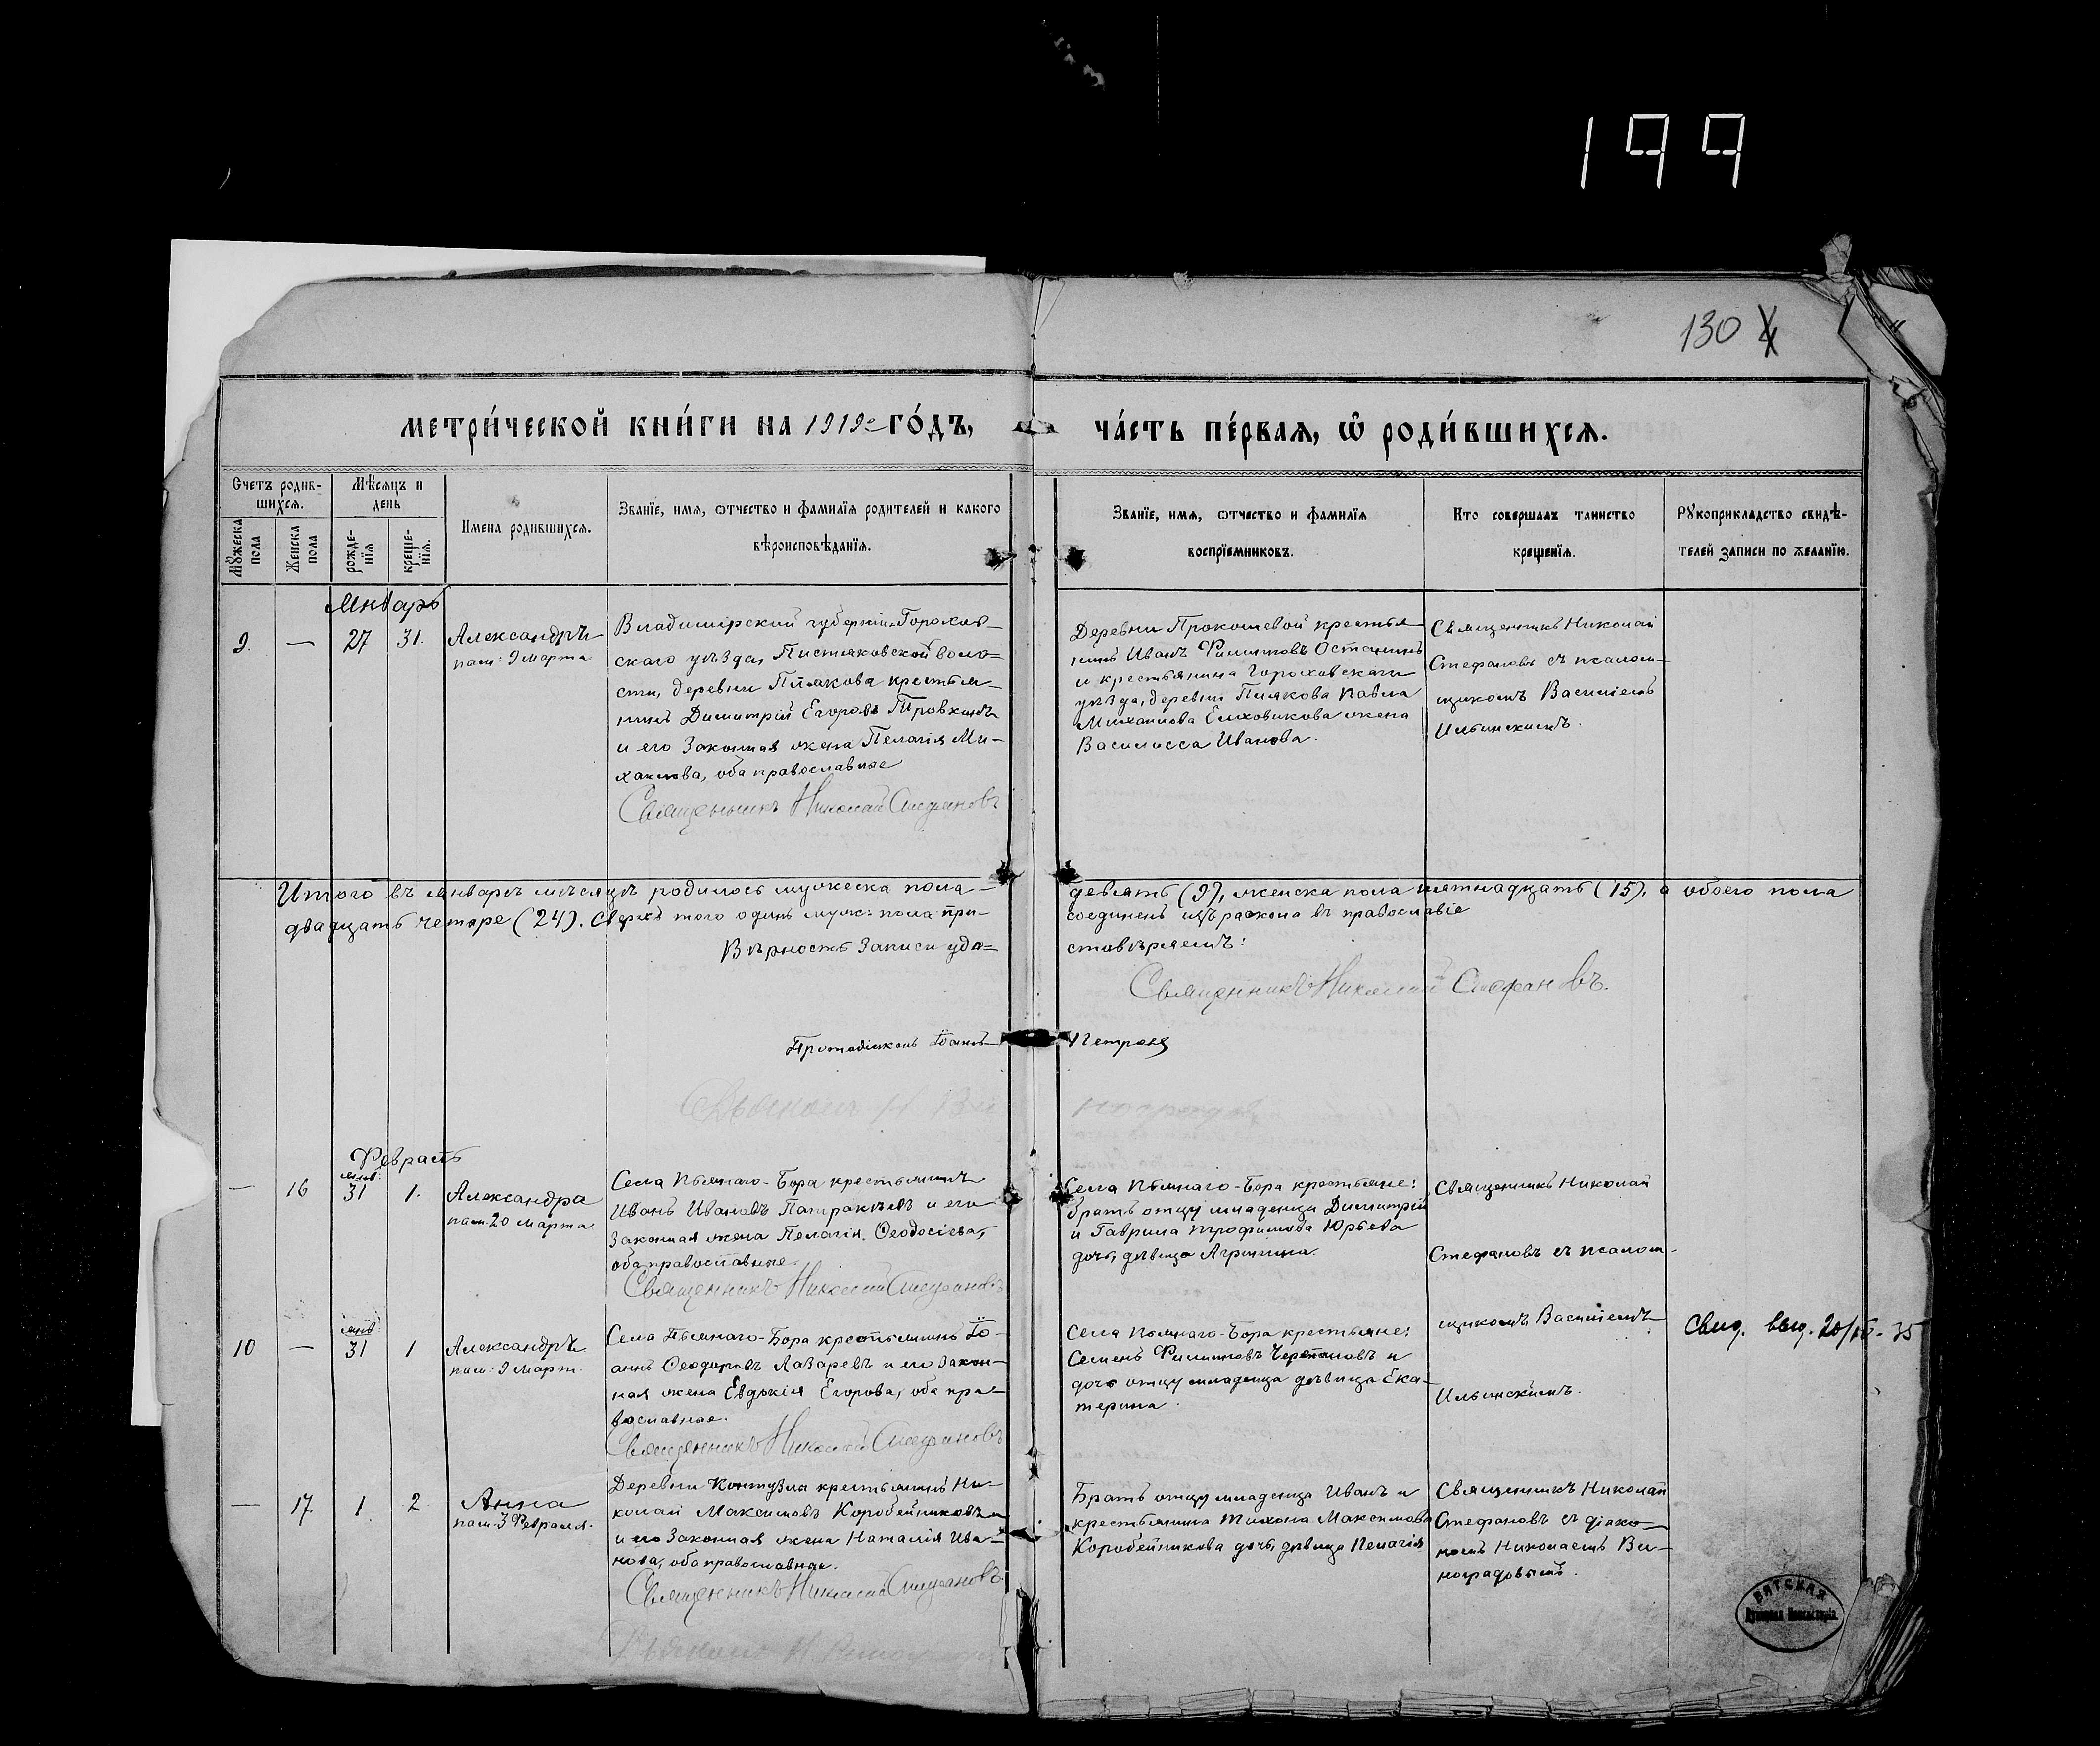 199
130 4
метри́ческой кни́ги на 1919й го́дъ,
ча́сть пе́рвая, ѡ҆ роди́вшихсѧ.
Счетъ родив-
шихсѧ.
Мѣсѧцъ и
день
Мꙋжеска
пола
Женска
пола
рожде-
нїѧ
креще-
нїѧ.
Имена родившихсѧ.
Званїе, имѧ, ѿчество и фамилїѧ родителей и какого
вѣроисповѣданїѧ.
Званїе, имѧ, ѿчество и фамилїѧ
воспрїемниковъ.
Кто совершалъ таинство
крещенїѧ.
Рꙋкоприкладство свидѣ-
телей записи по желанїю.
Январь
9. — 27 31. Александръ
пам: 9 марта
Владимірской губерніи Горохов-
скаго уѣзда,
деревни
Димитрій Егоровъ
и его законная жена Пелагія Ми-
хаилова, оба православные
Священникъ Николай Стефановъ
Деревни крестья-
нинъ Иванъ Филипповъ
и крестьянина Гороховскаго
уѣзда, деревни Павла
Михаилова жена
Василисса Иванова.
Священникъ Николай
Стефановъ съ псалом-
щикомъ Василіемъ
Ильинскимъ.
Итого въ январѣ мѣсяцѣ родилось мужеска пола — девять (9), женска пола пятнадцать (15), а обоего пола
двадцать четыре (24). Сверхъ того одинъ муж: пола при-
соединенъ изъ раскола въ православіе
Вѣрность записи удо=
стовѣряемъ:
Священникъ Николай Стефановъ.
Протодіаконъ Іоаннъ Петровъ
Діаконъ Н. Виноградовъ
Февраль
— 16 янв: 31 1. Александра
пам. 20 марта
Села Пьянаго-Бора крестьянинъ
Иванъ Ивановъ и его
законная жена Пелагія Ѳеодосіева,
оба православные.
Священникъ Николай Стефановъ
Села Пьянаго-Бора крестьяне:
братъ отцу младенца Димитрій
и Гавріила Трофимова Юрьева
дочь, дѣвица Агриппина.
Священникъ Николай
Стефановъ съ псалом-
щикомъ Василіемъ
Ильинскимъ.
10 — янв: 31 1 Александръ
пам: 9 март.
Села Пьянаго-Бора крестьянинъ Іо-
аннъ Ѳеодоровъ Лазаревъ и его закон-
ная жена Евдокія Егорова, оба пра-
вославные.
Священникъ Николай Стефановъ
Села Пьянаго-Бора крестьяне:
Семенъ Филипповъ Черепановъ и
дочь отцу младенца дѣвица Ека-
терина.
Свид. выд.
— 17 1. 2 Анна
пам: 3 Февраля.
Деревни крестьянинъ Ни-
колай Максимовъ Коробейниковъ
и его законная жена Наталія Ива-
нова, оба православные.
Священникъ Николай Стефановъ
Братъ отцу младенца Иванъ и
крестьянина Тихона Максимова
Коробейникова дочь, дѣвица Пелагія
Священникъ Николай
Стефановъ съ діако-
номъ Николаемъ Ви-
ноградовымъ.
Діаконъ Н. Виноградовъ
ВЯТСКАЯ
Духовная Консисторія.